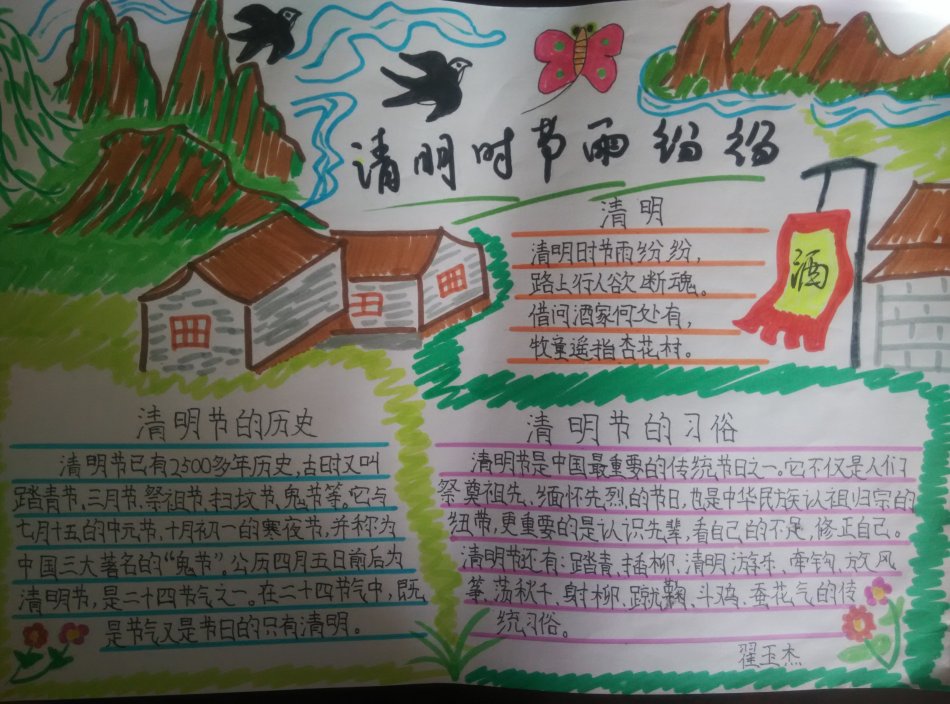 清明时节雨纷纷
清明
清明时节雨纷纷，
路上行人欲断魂。
借问酒家何处有，
牧童遥指杏花村。
酒
清明节的历史
清明节已有2500多年历史，古时又叫
踏青节、三月节、祭祖节、扫坟节、鬼节等。它与
七月十五的中元节、十月初一的寒夜节，并称为
中国三大著名的“鬼节”。公历四月五日前后为
清明节，是二十四节气之一。在二十四节气中，既
是节气又是节日的只有清明。
清明节的习俗
清明节是中国最重要的传统节日之一。它不仅是人们
祭奠祖先、缅怀先烈的节日，也是中华民族认祖归宗的
纽带，更重要的是认识先辈，看自己的不足，修正自己。
清明节还有：踏青、插柳、清明游乐、牵钩、放风
筝、荡秋千、射柳、蹴鞠、斗鸡、蚕花气的传
统习俗。
翟玉杰